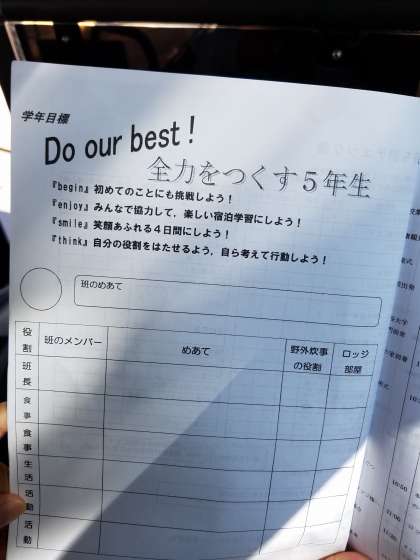 学年目標
Do our best!
全力をつくす5年生
『begin』初めてのことにも挑戦しよう!
『enjoy』みんなで協力して,楽しい宿泊学習にしよう!
『smile』笑顔あふれる4日間にしよう!
『think』自分の役割をはたせるよう,自ら考えて行動しよう!
班のめあて
役割 班のメンバー めあて 野外炊事の役割 ロッジ部屋
班長
食事
食事
生活
活動
活動